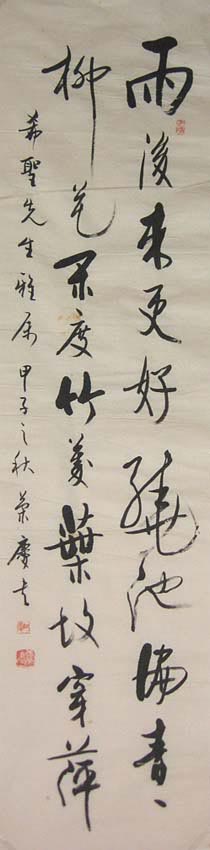 雨後来更好繞池偏青〻
柳花閑度竹菱葉故穿萍
希聖先生雅属 甲子之秋 慶